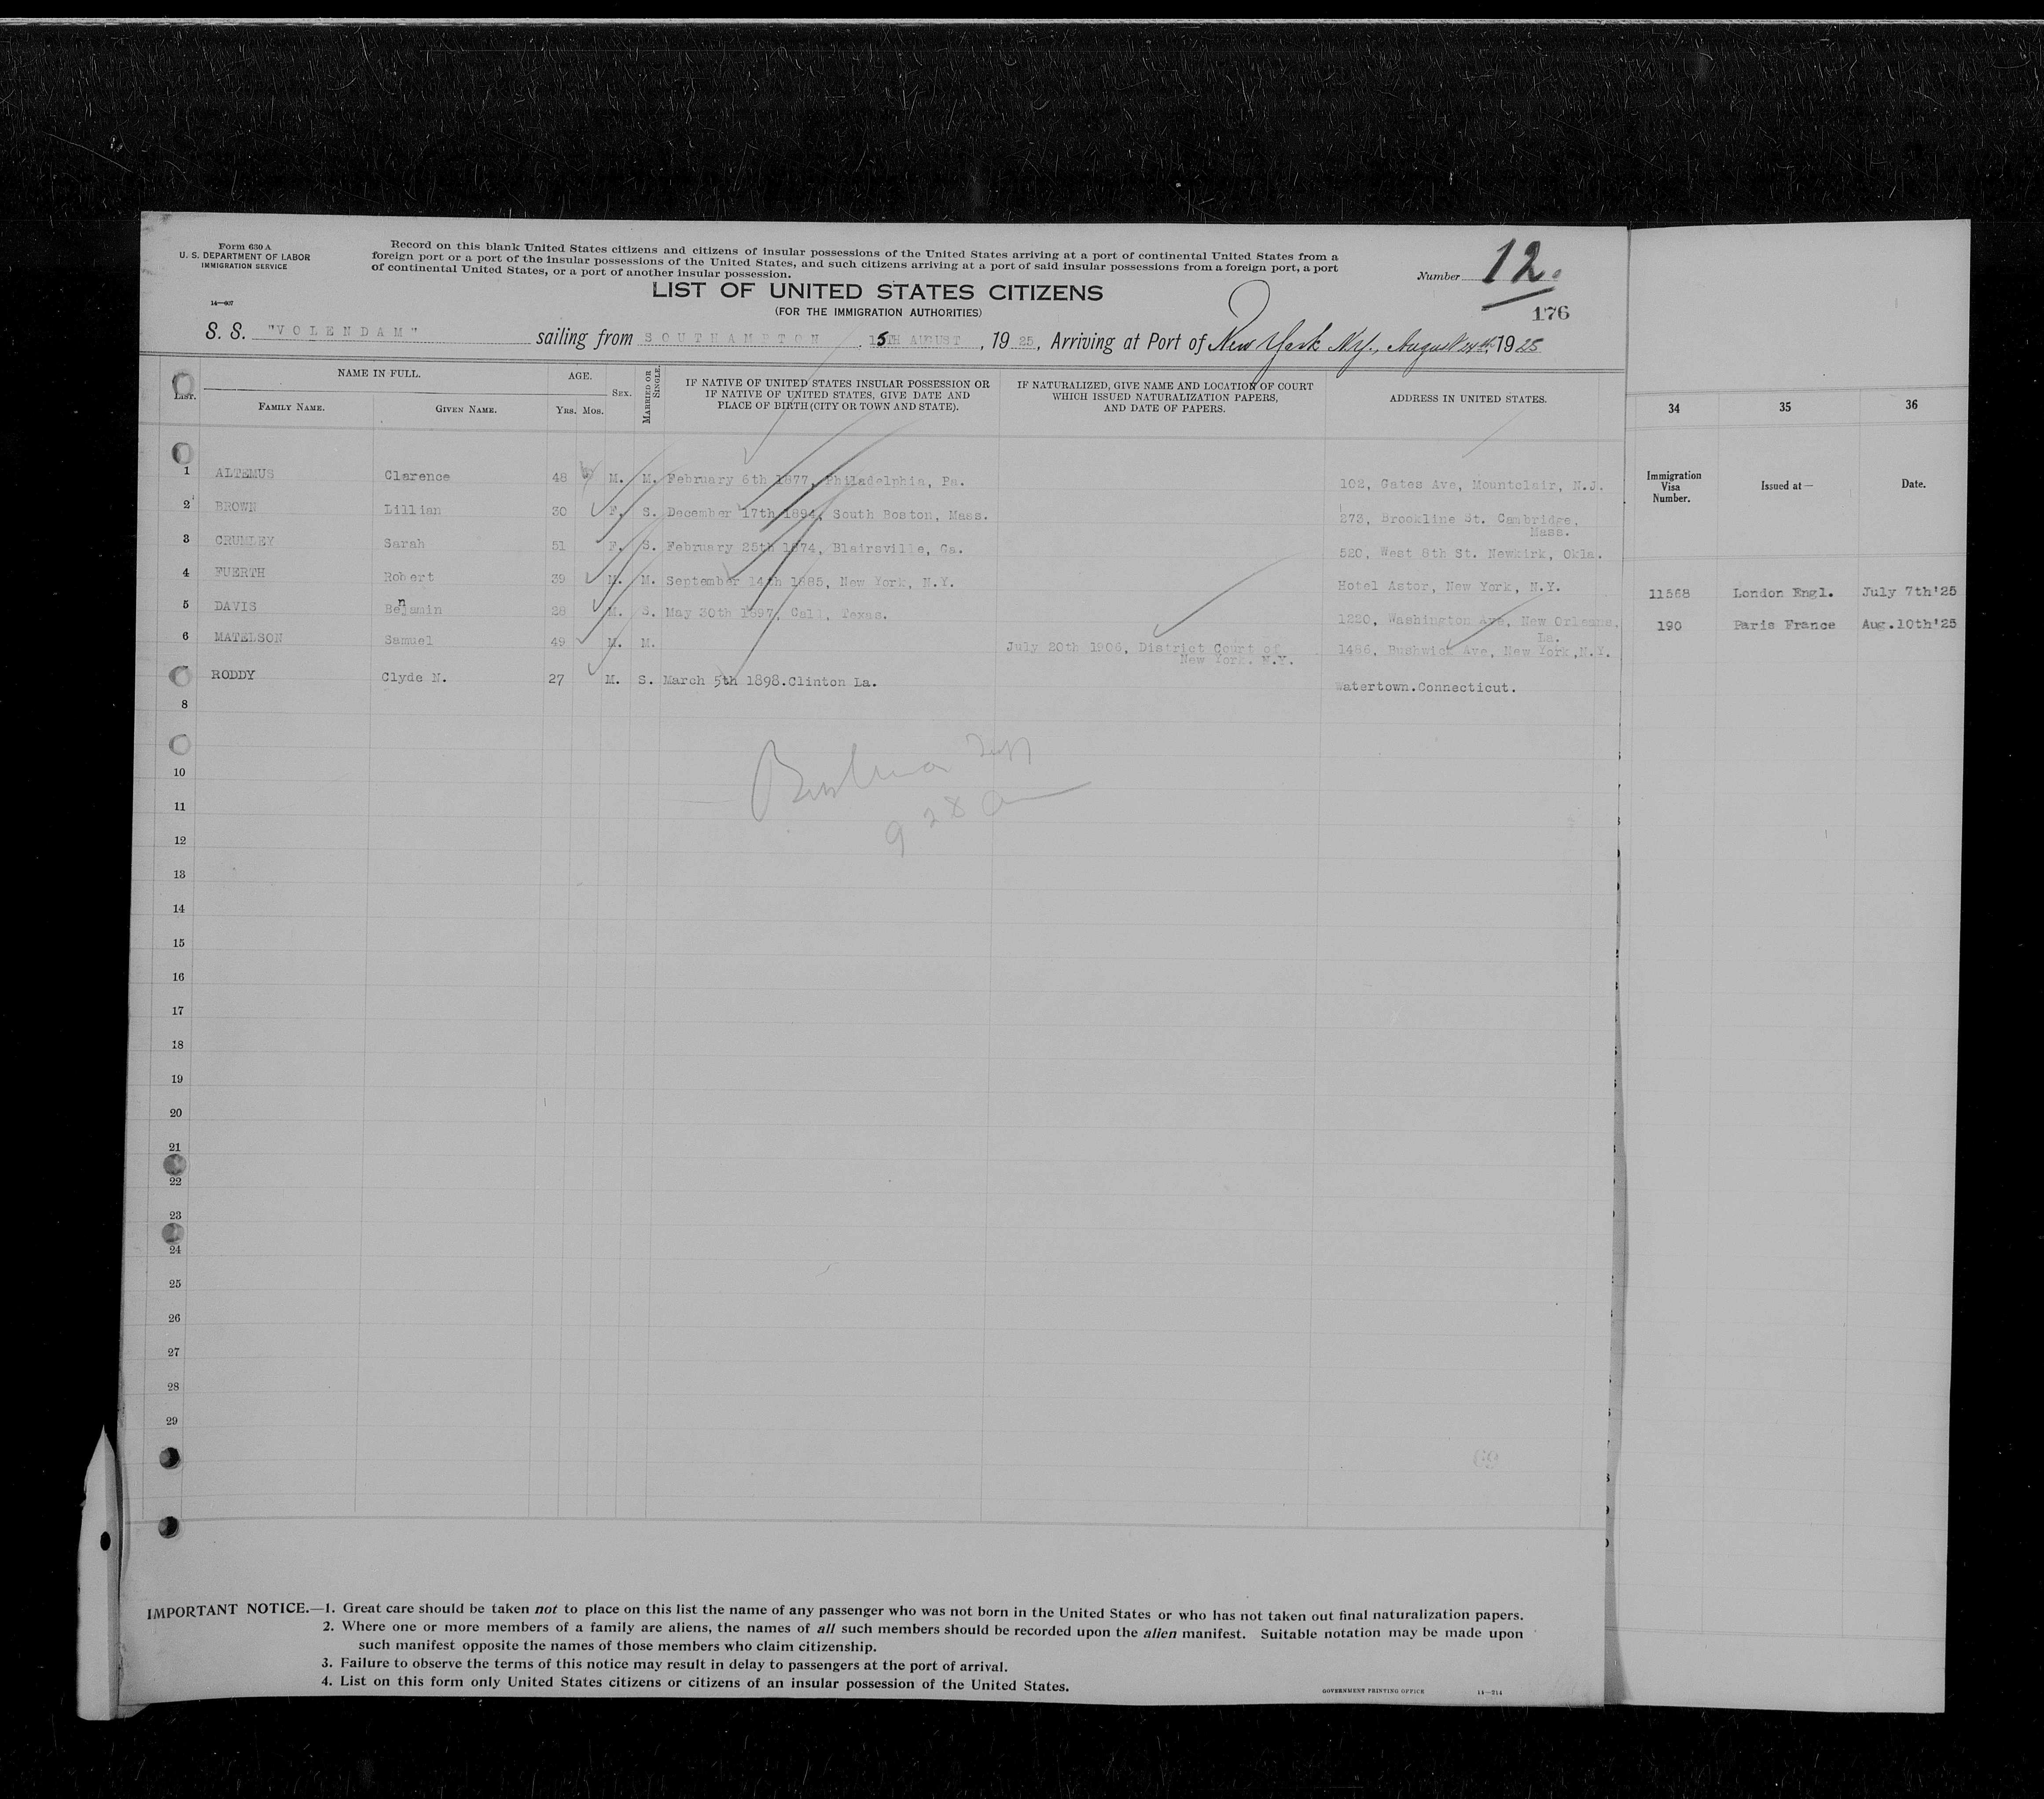 Form 630 A
U. S. DEPARTMENT OF LABOR
IMMIGRATION SERVICE
14—607
Record on this blank United States citizens and citizens of insular possessions of the United States arriving at a port of continental United States from a
foreign port or a port of the insular possessions of the United States, and such citizens arriving at a port of said insular possessions from a foreign port, a port
of continental United States, or a port of another insular possession.
Number 12.
176
LIST OF UNITED STATES CITIZENS
(FOR THE IMMIGRATION AUTHORITIES)
S. S. "VOLENDAM" sailing from SOUTHAMPTON, 15TH AUGUST, 1925, Arriving at Port of New York N.Y., August 24th, 1925
List.
NAME IN FULL.
FAMILY NAME.
GIVEN NAME.
AGE.
YRS. MOS.
SEX.
MARRIED OR SINGLE.
IF NATIVE OF UNITED STATES INSULAR POSSESSION OR
IF NATIVE OF UNITED STATES, GIVE DATE AND
PLACE OF BIRTH (CITY OR TOWN AND STATE).
IF NATURALIZED, GIVE NAME AND LOCATION OF COURT
WHICH ISSUED NATURALIZATION PAPERS,
AND DATE OF PAPERS.
ADDRESS IN UNITED STATES.
34 35 36
Immigration Visa Number. Issued at— Date.
1 ALTEMUS Clarence 48 M. M. February 6th 1877, Philadelphia, Pa. 102, Gates Ave, Mountclair, N.J.
2 BROWN Lillian 30 F. S. December 17th 1894, South Boston, Mass. 273, Brookline St. Cambridge,
Mass.
3 CRUMLEY Sarah 51 F. S. February 25th 1874, Blairsville, Ga. 520, West 8th St. Newkirk, Okla.
4 FUERTH Robert 39 M. M. September 14th 1885, New York, N.Y. Hotel Astor, New York, N.Y.
11568 London Engl. July 7th'25
5 DAVIS Benjamin 28 M. S. May 30th 1897, Call, Texas. 1220, Washington Ave, New Orleans,
La.
190 Paris France Aug.10th'25
6 MATELSON Samuel 49 M. M. July 20th 1906, District Court of
New York. N.Y.
1486, Bushwick Ave, New York,N.Y.
RODDY Clyde N. 27 M. S. March 5th 1898.Clinton La. Watertown.Connecticut.
8
10
11
12
13
14
15
16
17
18
19
20
21
22
23
24
25
26
27
28
29
IMPORTANT NOTICE.—1. Great care should be taken not to place on this list the name of any passenger who was not born in the United States or who has not taken out final naturalization papers.
2. Where one or more members of a family are aliens, the names of all such members should be recorded upon the alien manifest. Suitable notation may be made upon
such manifest opposite the names of those members who claim citizenship.
3. Failure to observe the terms of this notice may result in delay to passengers at the port of arrival.
4. List on this form only United States citizens or citizens of an insular possession of the United States.
GOVERNMENT PRINTING OFFICE 14—214